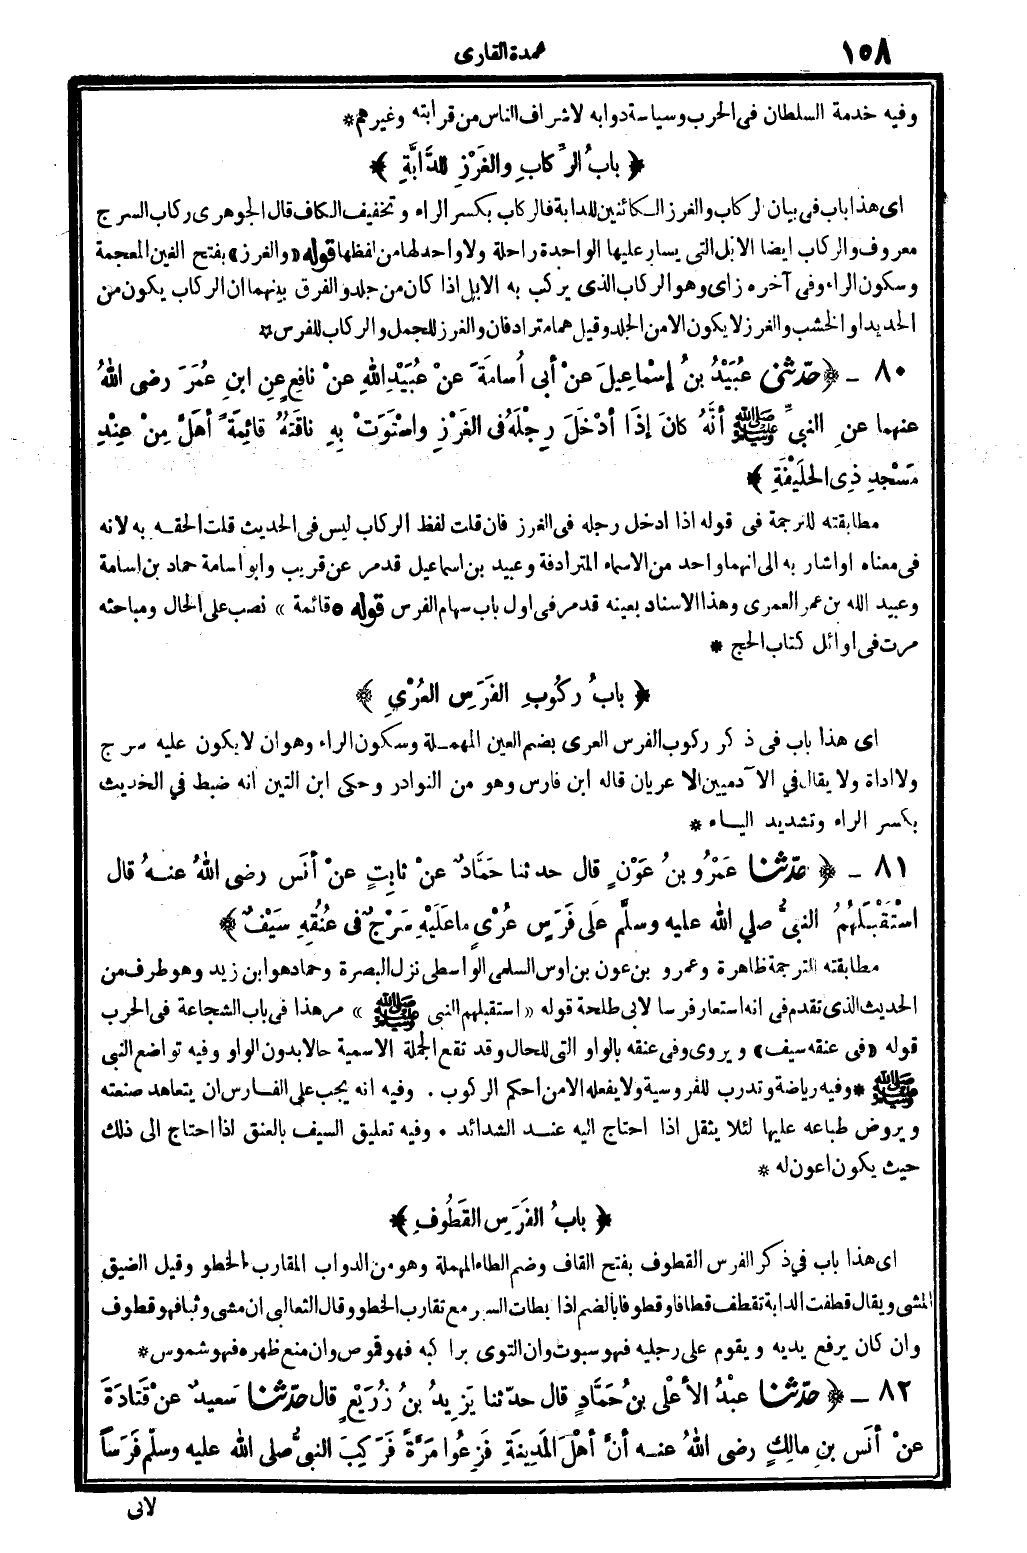 ١٥٨
عمدة القارى
وفيه خدمة السلطان فى الحرب وسياسة دوابه لاشراف الناس من قرابته وغيرهم *
﴿ بابُ الرِّكابِ والغَرْزِ للدَّابَّةِ ﴾
اى هذا باب فى بيان الركاب والغرز الكائنين للدابة فالركاب بكسر الراء وتخفيف الكاف قال الجوهرى ركاب السرج
معروف والركاب ايضا الابل التى يسار عليها الواحدة راحلة ولا واحد لها من لفظها قوله «والغرز» بفتح الغين المعجمة
وسكون الراء وفى آخره زاى وهو الركاب الذى يركب به الابل اذا كان من جلد والفرق بينهما ان الركاب يكون من
الحديد او الخشب والغرز لا يكون الا من الجلد وقيل هما مترادفان والغرز للجمل والركاب للفرس *
٨٠ ـ ﴿ حدّثنى عُبَيْدُ بنُ إسْماعِيلَ عنْ أبى أُسامَةَ عنْ عُبَيْدِ اللهِ عنْ نافِعٍ عنِ ابنِ عُمَرَ رضى اللهُ
عنهما عنِ النبىِّ ﷺ أنَّهُ كانَ إذَا أدْخَلَ رِجْلَهُ فى الغَرْزِ واسْتَوَتْ بِهِ ناقَتُهُ قائِمَةً أهَلَّ مِنْ عِنْدِ
مَسْجِدِ ذِى الحُلَيْفَةِ ﴾
مطابقته للترجمة فى قوله اذا ادخل رجله فى الغرز فان قلت لفظ الركاب ليس فى الحديث قلت الحقه به لانه
فى معناه او اشار به الى انهما واحد من الاسماء المترادفة وعبيد بن اسماعيل قد مر عن قريب وأبو اسامة حماد بن اسامة
وعبيد الله بن عمر العمرى وهذا الاسناد بعينه قد مر فى اول باب سهام الفرس قوله «قائمة» نصب على الحال ومباحثه
مرت فى اوائل كتاب الحج *
﴿ بابُ رُكُوبِ الفَرَسِ العُرْىِ ﴾
اى هذا باب فى ذكر ركوب الفرس العرى بضم العين المهملة وسكون الراء وهو ان لا يكون عليه سرج
ولا اداة ولا يقال في الآدميين الا عريان قاله ابن فارس وهو من النوادر وحكى ابن التين انه ضبط في الحديث
بكسر الراء وتشديد الياء *
٨١ ـ ﴿ حدّثنا عَمْرُو بنُ عَوْنٍ قال حدثنا حَمَّادٌ عنْ ثابِتٍ عنْ أنَسٍ رضى اللهُ عنهُ قال
اسْتَقْبَلَهُمُ النبىُّ صلي الله عليه وسلَّم عَلَى فَرَسٍ عُرْىٍ ما عَلَيْهِ سَرْجٌ فى عُنُقِهِ سَيْفٌ ﴾
مطابقته الترجمة ظاهرة وعمرو بن عون بن اوس السلمى الواسطى نزل البصرة وحماد هو ابن زيد وهو طرف من
الحديث الذى تقدم فى انه استعار فرسا لابى طلحة قوله «استقبلهم النبى ﷺ» مر هذا فى باب الشجاعة فى الحرب
قوله «فى عنقه سيف» ويروى وفى عنقه بالواو التى للحال وقد تقع الجملة الاسمية حالا بدون الواو وفيه تواضع النبى
ﷺ * وفيه رياضة وتدرب للفروسية ولا يفعله الا من احكم الركوب . وفيه انه يجب على الفارس ان يتعاهد صنعته
ويروض طباعه عليها لئلا يثقل اذا احتاج اليه عند الشدائد . وفيه تعليق السيف بالعنق لذا احتاج الى ذلك
حيث يكون اعون له *
﴿ بابُ الفَرَسِ القَطُوفِ ﴾
اى هذا باب في ذكر الفرس القطوف بفتح القاف وضم الطاء المهملة وهو من الدواب المقارب الخطو وقيل الضيق
المشى ويقال قطفت الدابة تقطف قطافا وقطوفا بالضم اذا بطات السير مع تقارب الخطو وقال الثعالبى ان مشى وثبا فهو قطوف
وان كان يرفع يديه ويقوم على رجليه فهو سبوت وان التوى براكبه فهو قموص وان منع ظهره فهو شموس *
٨٢ ـ ﴿ حدّثنا عبْدُ الأعْلَى بنُ حَمَّادٍ قال حدّثنا يَزِيدُ بنُ زُرَيْعٍ قال حدّثنا سَعيدٌ عنْ قَتادَةَ
عنْ أنَسِ بنِ مالِكٍ رضى اللهُ عنه أنَّ أهْلَ المَدِينَةِ فَزِعُوا مَرَّةً فَرَكِبَ النبىُّ صلى الله عليه وسلّم فَرَساً
لابى